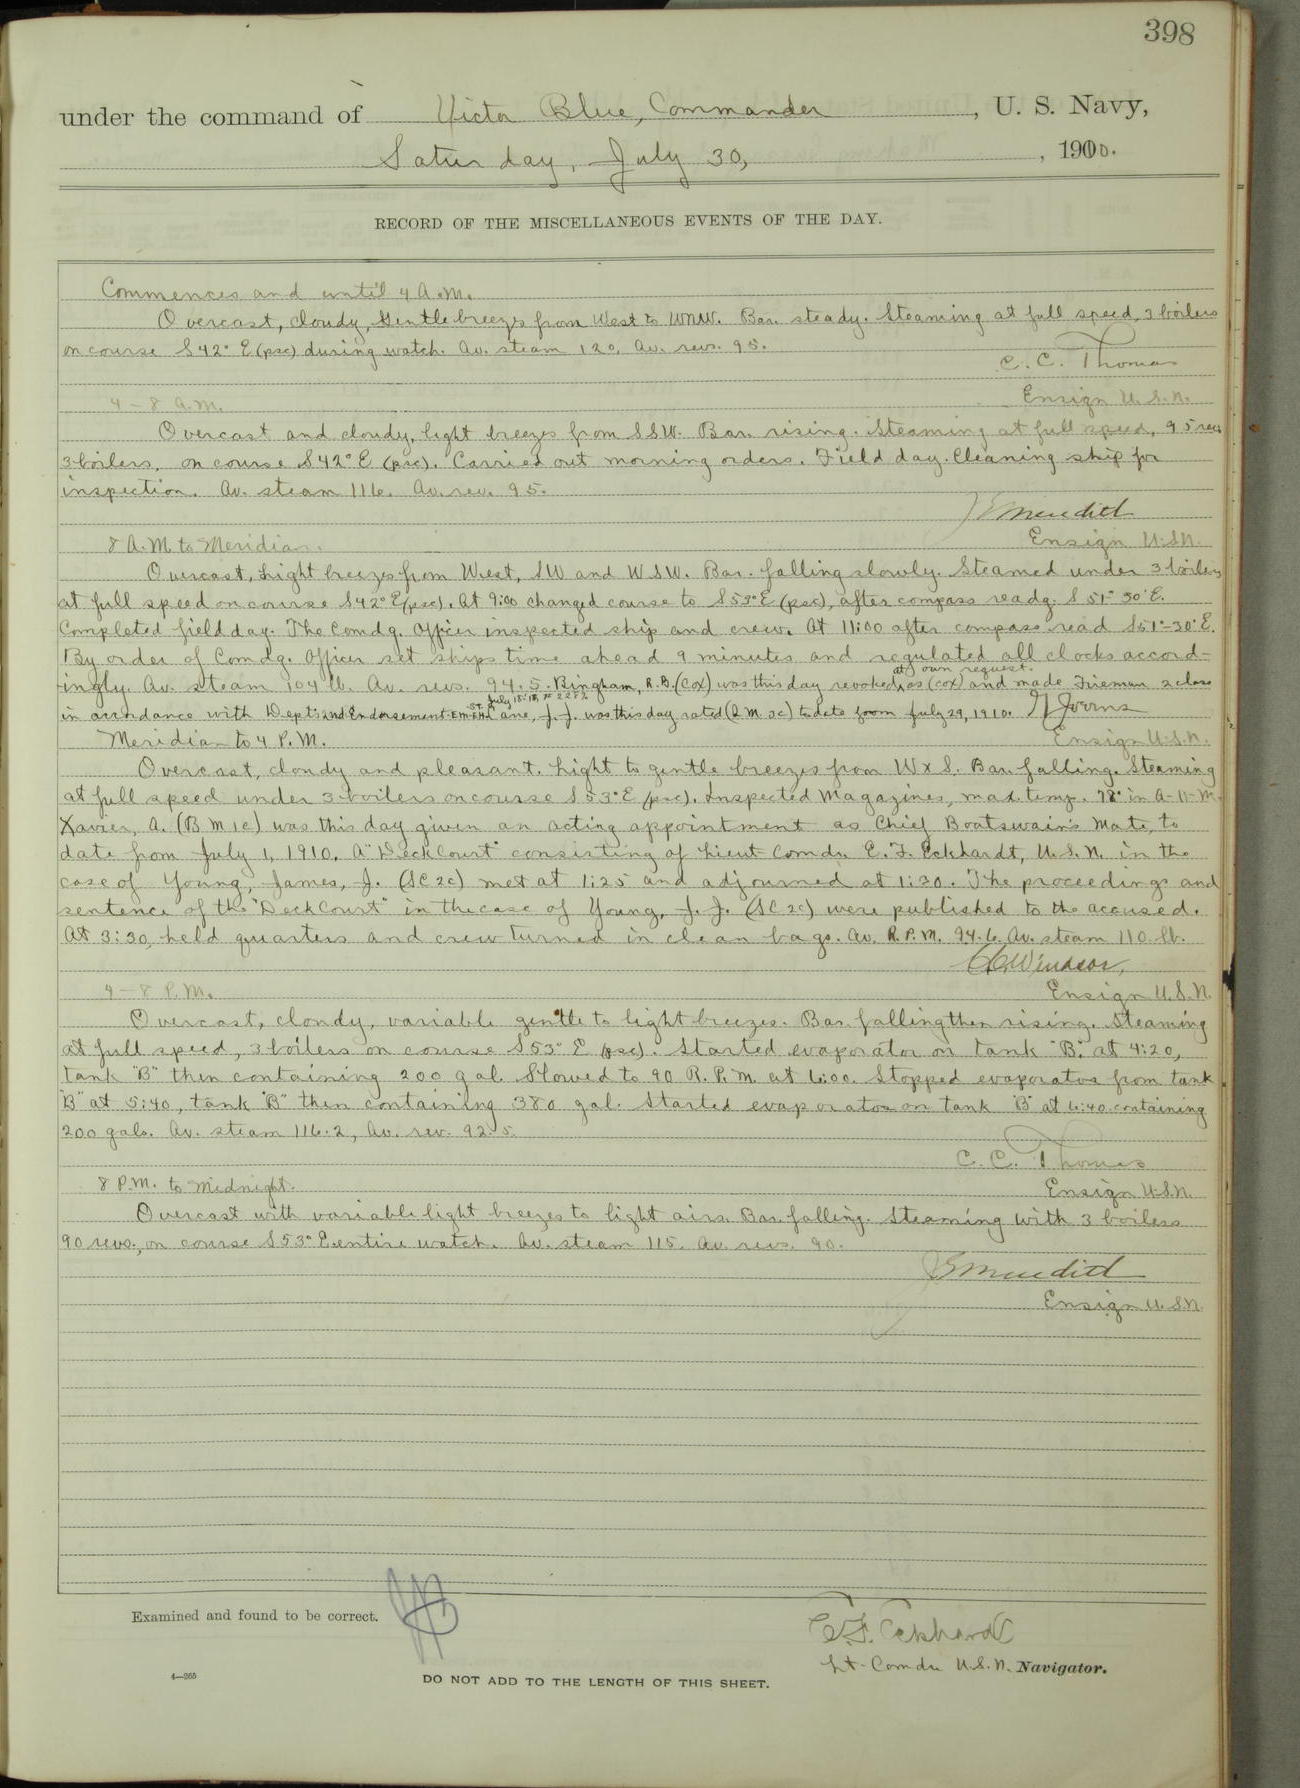 398
under the command of Victor Blue, Commander, U. S. Navy,
Saturday, July 30, 1910.
RECORD OF THE MISCELLANEOUS EVENTS OF THE DAY.
Commences and until 4 A.M.
Overcast, cloudy, Gentle breezes from West to WNW. Bar. steady. Steaming at full speed, 3 boilers
on course S42° E (psc) during watch. Av. steam 120, Av. revs. 95.
C. C. Thomas
4 – 8 A.M.
Ensign U.S.N.
Overcast and cloudy, light breezes from SSW. Bar. rising. Steaming at full speed, 95 revs
3 boilers, on course S42° E (psc). Carried out morning orders. Field day. Cleaning ship for
inspection. Av. steam 116. Av. rev. 95.
Meredith
8 A.M. to Meridian.
Ensign U.S.N.
Overcast, Light breezes from West, SW and WSW. Bar. falling slowly. Steamed under 3 boilers
at full speed on course S42° E (psc). At 9:00 changed course to S53° E (psc), after compass readg. S 51° 30' E.
Completed field day. The Comdg. Officer inspected ship and crew. At 11:00 after compass read S51°-30' E.
By order of Comdg. Officer set ships time ahead 9 minutes and regulated all clocks accord-
at own request.
ingly. Av. steam 104 lb. Av. revs. 94.5. Bingham, R.B. (Cox) was this day revoked as (cox) and made Fireman 2 class
in accordance with Dept's 2nd Endorsement ane, J. J. was this day rated to date from July 29, 1910.
Meridian to 4 P.M.
Ensign U.S.N.
Overcast, cloudy and pleasant. Light to gentle breezes from W x S. Bar. falling. Steaming
at full speed under 3 boilers on course S 53° E (psc). Inspected Magazines, max. temp. 98° in A-11-M.
Xavier, A. (B M 1c) was this day given an acting appointment as Chief Boatswain's Mate, to
date from July 1, 1910. A "Deck Court" consisting of Lieut-Comdr. E. F. Eckhardt, U.S.N. in the
case of Young, James, J. (SC 2c) met at 1:25 and adjourned at 1:30. The proceedings and
sentence of the "Deck Court" in the case of Young, J. J. (SC 2c) were published to the accused.
At 3:30, held quarters and crew turned in clean bags. Av. R.P.M. 94.6. Av. steam 110 lb.
Windsor,
4 – 8 P.M.
Ensign U.S.N.
Overcast, cloudy, variable gentle to light breezes. Bar. falling then rising. Steaming
at full speed, 3 boilers on course S53° E (psc). Started evaporator on tank "B" at 4:20,
tank "B" then containing 200 gal. Slowed to 90 R.P.M. at 6:00. Stopped evaporator from tank
"B" at 5:40, tank "B" then containing 380 gal. Started evaporator on tank "B" at 6:40 containing
200 gals. Av. steam 116.2, Av. rev. 92.5.
C. C. Thomas
8 P.M. to Midnight.
Ensign U.S.N.
Overcast with variable light breezes to light airs. Bar. falling. Steaming with 3 boilers
90 revs., on course S53° E. entire watch. Av. steam 115. Av. revs. 90.
Meredith
Ensign U.S.N.
Examined and found to be correct.
E. F. Eckhardt
Lt-Comdr U.S.N. Navigator.
4—265
DO NOT ADD TO THE LENGTH OF THIS SHEET.